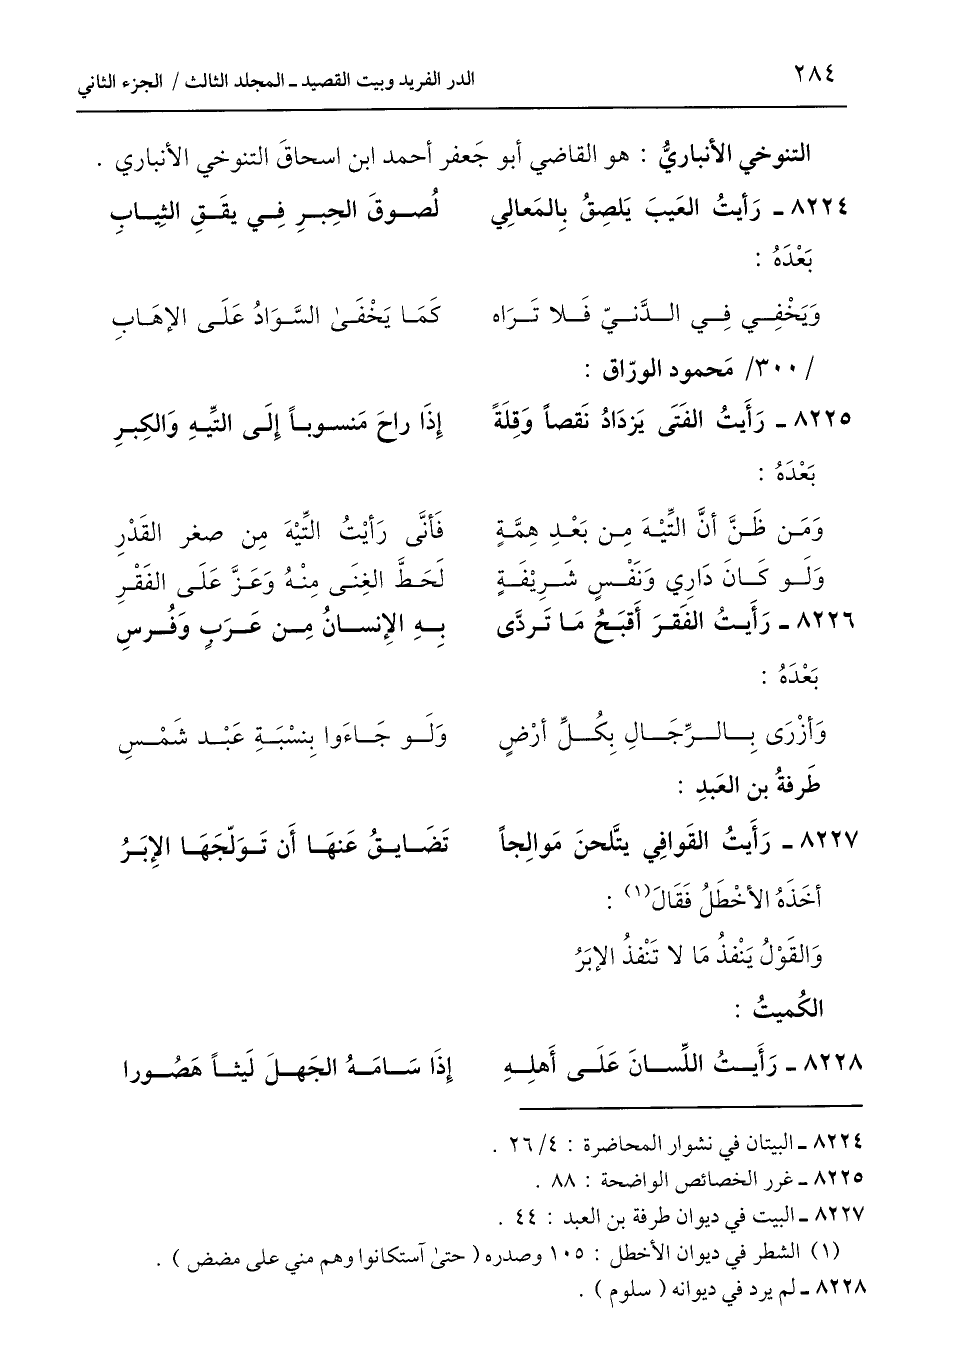 ٢٨٤ الدر الفريد وبيت القصيد ـ المجلد الثالث / الجزء الثاني
التنوخي الأنباريُّ : هو القاضي أبو جَعفر أحمد ابن اسحاقَ التنوخي الأنباري .
٨٢٢٤ ـ رَأيتُ العَيبَ يَلصِقُ بِالمَعالِي لُصوقَ الحِبرِ فِي يقَقِ الثِيابِ
بَعْدَهُ :
وَيَخْفِي فِي الدَّنيّ فَلا تَرَاه كَمَا يَخْفَىٰ السَّوَادُ عَلَى الإهَابِ
/ ٣٠٠/ مَحمود الورّاق :
٨٢٢٥ ـ رَأَيتُ الفَتَى يَزدَادُ نَقصاً وَقِلَةً إِذَا راحَ مَنسوباً إِلَى التِّيهِ وَالكِبرِ
بَعْدَهُ :
وَمَن ظَنَّ أنَّ التِّيْهَ مِن بَعْدِ هِمَّةٍ فَأنَّى رَأيْتُ التِّيْهَ مِن صغر القَدْرِ
وَلَو كَانَ دَارِي وَنَفْسٍ شَرِيْفَةٍ لَحَطَّ الغِنَى مِنْهُ وَعَزَّ عَلَى الفَقْرِ
٨٢٢٦ ـ رَأَيتُ الفَقرَ أَقبَحُ مَا تَردَّى بِهِ الإِنسانُ مِن عَرَبٍ وَفُرسِ
بَعْدَهُ :
وَأزْرَى بِالرِّجَالِ بِكُلِّ أرْضٍ وَلَو جَاءَوا بِنسْبَةِ عَبْد شَمْسِ
طَرفةُ بن العَبدِ :
٨٢٢٧ ـ رَأَيتُ القَوافِي يتَّلحنَ مَوالِجاً تَضَايقُ عَنهَا أَن تَولّجَهَا الإِبَرُ
أخَذَهُ الأخْطَلُ فَقَالَ(١) :
وَالقَوْلُ يَنْفذُ مَا لا تَنْفذُ الإبَرُ
الكُميتُ :
٨٢٢٨ ـ رَأَيتُ اللِّسانَ عَلَى أَهلِهِ إِذَا سَامَهُ الجَهلَ لَيثاً هَصُورا
٨٢٢٤ ـ البيتان في نشوار المحاضرة : ٢٦/٤ .
٨٢٢٥ ـ غرر الخصائص الواضحة : ٨٨ .
٨٢٢٧ ـ البيت في ديوان طرفة بن العبد : ٤٤ .
(١) الشطر في ديوان الأخطل : ١٠٥ وصدره ( حتىٰ آستكانوا وهم مني على مضض ) .
٨٢٢٨ ـ لم يرد في ديوانه ( سلوم ) .